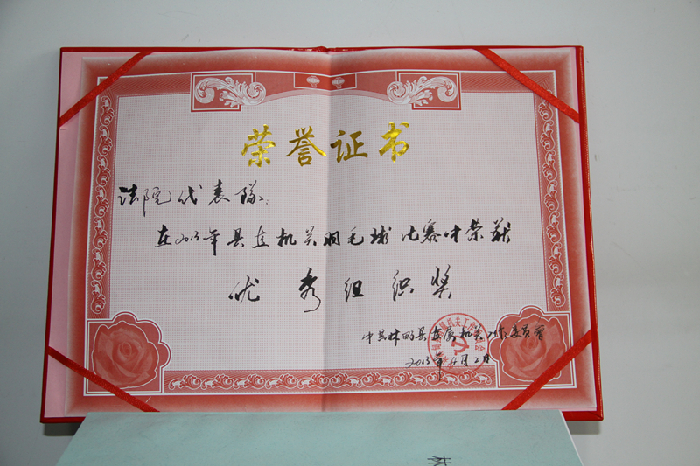 荣誉证书
法院代表队：
在2015年县直机关羽毛球比赛中荣获
优秀组织奖
中共 县直属机关工作委员会
2015年 月 日